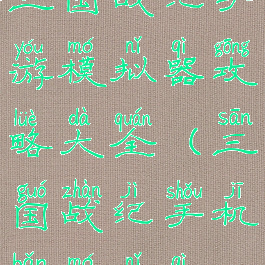 yóu mó nǐ qì gōng
游模拟器攻
lüè dà quán sān
略大全（三
guó zhàn jì shǒu jī
国战纪手机
bǎn mó nǐ qì